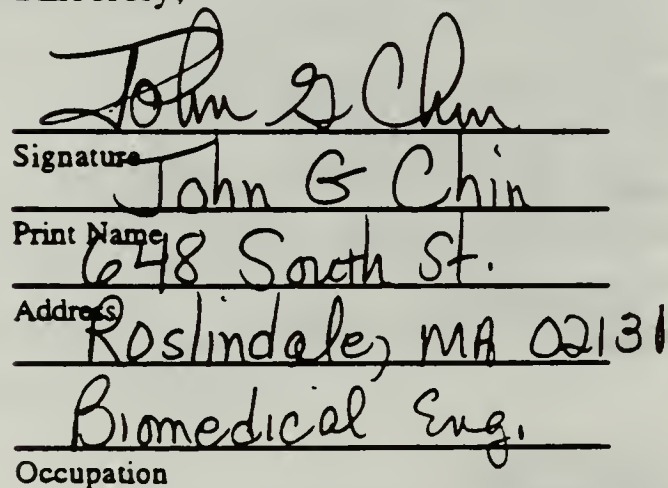 John G Chin
Signature
John G Chin
Print Name
648 South St.
Address
Roslindale, MA 02131
Biomedical Eng.
Occupation